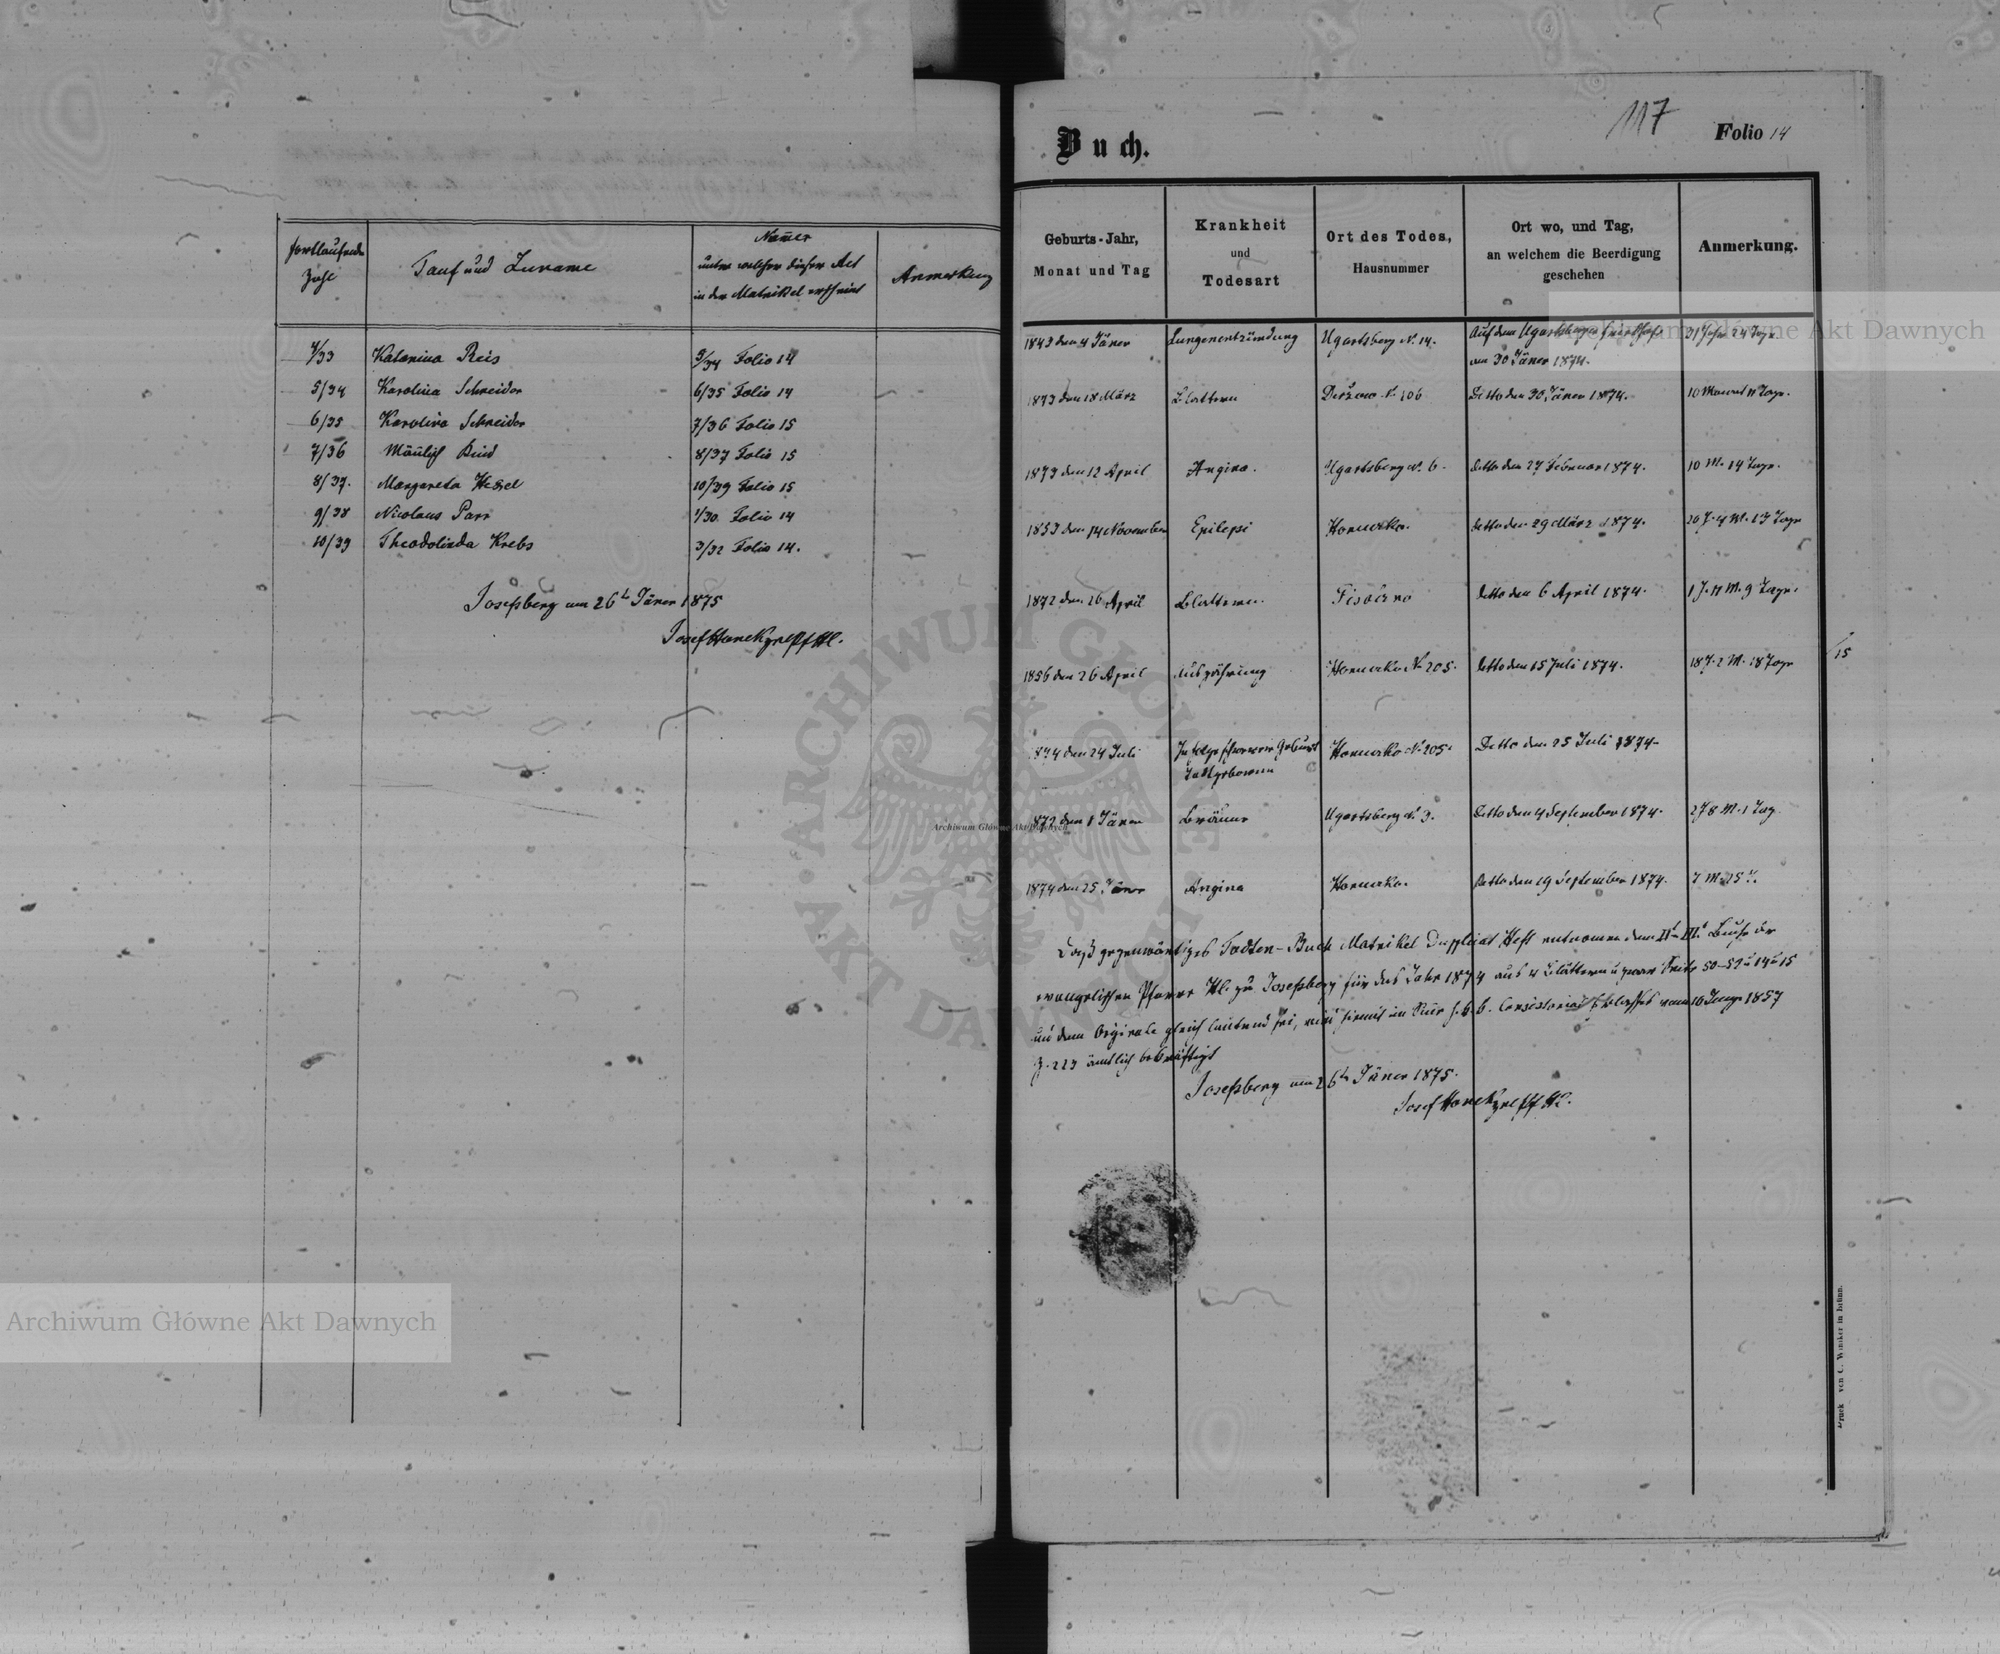 fortlaufende Zahl
Tauf und Zuname
Numer
unter welcher dieser Act
in der Matrikel erscheint
Anmerkung
4/33 Katarina Reis 5/34 Folio 14
5/34 Karolina Schneider 6/35 Folio 14
6/35 Karolina Schneider 7/36 Folio 15
7/36 Mänlich Kind 8/37 Folio 15
8/37. Margareta Hessel 10/39 Folio 15
9/38 Nicolaus Parr 1/30 Folio 14
10/39 Theodolinda Krebs 3/32 Folio 14.
Josefsberg am 26t Jäner 1875
Josef Hanek
117
Buch.
Folio 14
Geburts-Jahr,
Monat und Tag
Krankheit
und
Todesart
Ort des Todes,
Hausnummer
Ort wo, und Tag,
an welchem die Beerdigung
geschehen
Anmerkung.
1843 den 4 Jäner Lungenentzündung Ugartsberg N. 14. Auf dem Ugartsberger Friedhofe 31 Jahr 24 Tage
am 30 Jäner 1874.
1873 den 18 März Blattern Deržow N. 106 Detto den 30 Jäner 1874. 10 Monat 11 Tage.
1873 den 12 April Angina. Ugartsberg N. 6. Detto den 27 Februar 1874. 10 M. 14 Tage.
1853 den 14 November Epilepsi Horucko. Detto den 29 März 1874. 20 J. 4 M. 13 Tage
1872 den 26 April Blattern. Detto den 6 April 1874. 1 J. 11 M. 9 Tage.
1856 den 26 April Auszehrung Horucko N. 205. Detto den 15 Juli 1874. 18 J. 2 M. 18 Tage
15
1874 den 24 Juli In folge schwerer Geburt Horucko N. 205. Detto den 25 Juli 1874.
Todtgeboren
1872 den 1 Jäner Bräune Ugartsberg N. 3. Detto den 4 September 1874. 2 J 8 M. 1 Tag
1874 den 25 Jäner Angina Horucko. Detto den 19 September 1874. 7 M 25 T.
Daß gegenwärtiges Todten-Buch Matrikel Duplicat Heft entnomen dem IIt. Buche der
evangelischen Pfarre HC. zu Josefsberg für das Jahr 1874 aus 4 Blättern u zwar Seite 50-52 u 14 u 15
und dem Originale gleich lautend sei, wird hiemit im Sinne h. k. k. Consistorial Erlasses vom 10 1857
Z. 223 ämtlich bekräftigt
Josefsberg am 26t Jäner 1875.
Josef Hanek
Druck von C. Winiker in Brünn.
Archiwum Główne Akt Dawnych
Archiwum Główne Akt Dawnych
Archiwum Główne Akt Dawnych
ARCHIWUM GŁÓWNE AKT DAWNYCH